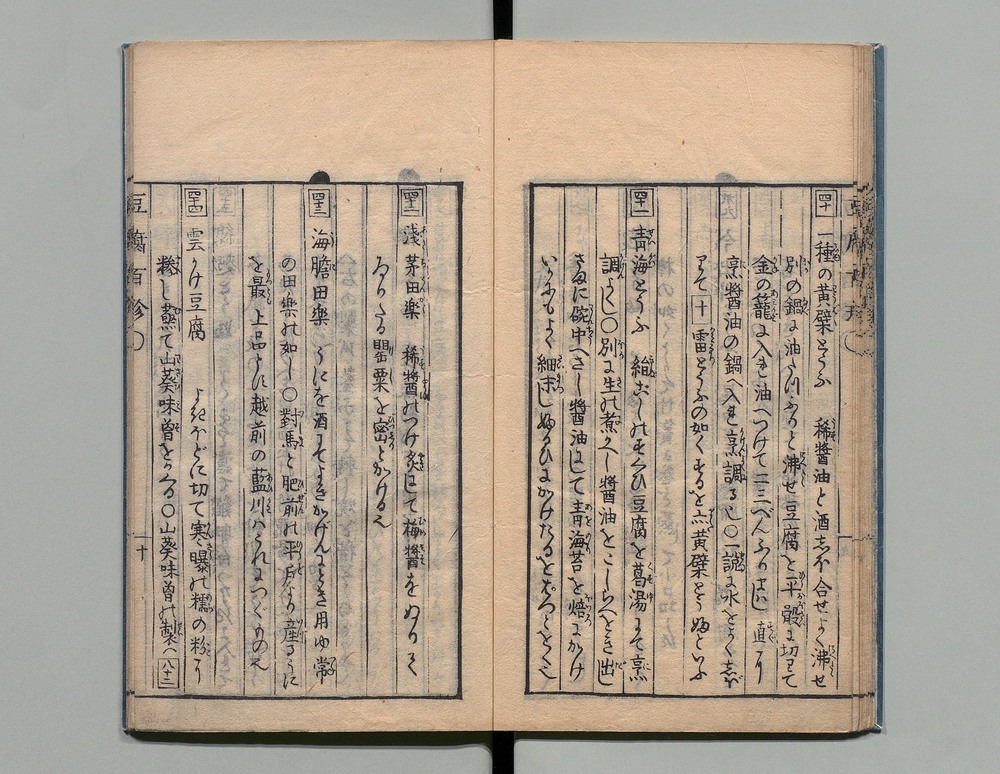 四十 一種の黄檗とうふ 稀醤油と酒しほ合せよく沸せ
別の鍋に油たつふりと沸せ豆腐を平骰に切りて
金の籠に入れ油へつけて二三べんふりはし直に
烹醤油の鍋へ入れ烹調る也〇一説に水をよくしぼ
りて 十 雷とうふの如くするを黄檗とうふといふ
四十一 青海とうふ 絹ごしのすくひ豆腐を葛湯にて烹
調よし〇別に生の煮かへし醤油をこしらへおき出し
さまに碗中へさし醤油はして青海苔を焙にかけ
いかにもよく細末しふるひにかけたるをはらりとおく也
四十二 浅茅田楽 稀醤のつけ炙にして梅醤をぬりて
ゐりたる罌粟を密とかける也
四十三 海膽田楽 うにを酒にてよきかげんにとき用ゆ常
の田楽の如し〇對馬と肥前の平戸より産るうに
を最上品とす越前の藍川はこれにつぐもの也
四十四 雲かけ豆腐 よきほどに切て寒曝の糯の粉に
糝し蒸て山葵味噌をかくる〇山葵味噌の製ハ 八十二
豆腐百珍 十